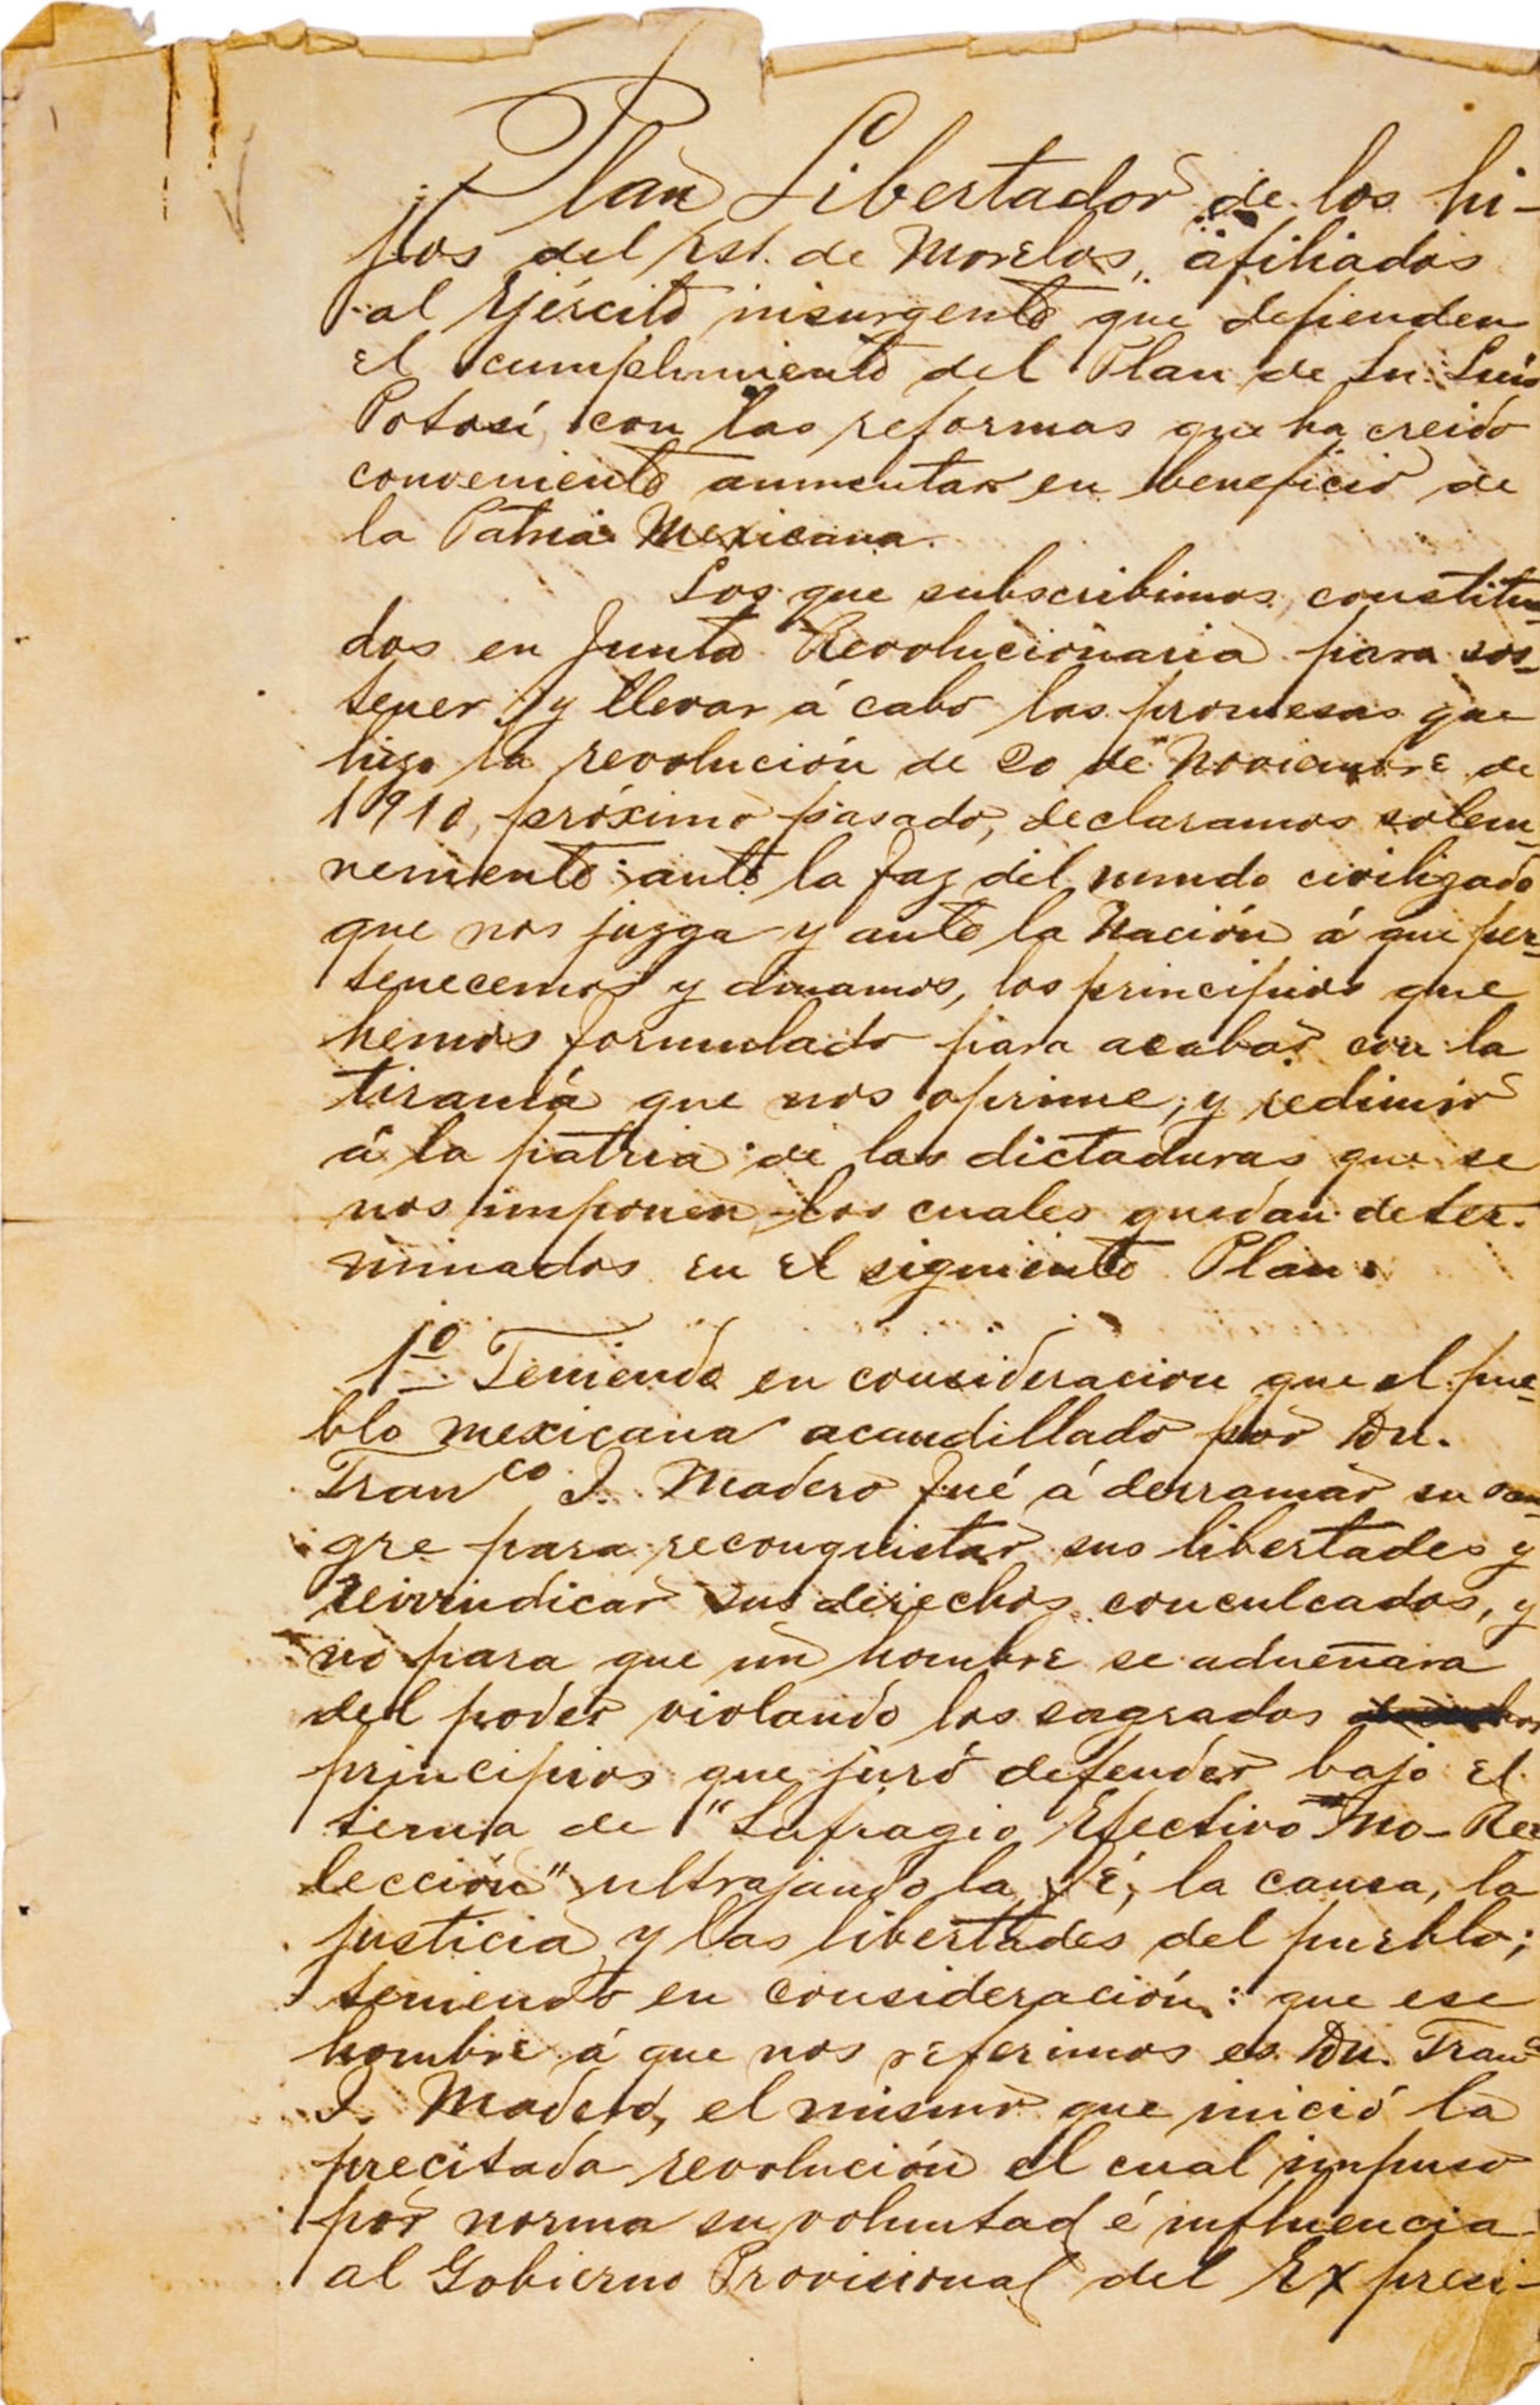 Plan Libertador de los hi-
jos del Est. de Morelos, afiliados
al Ejército insurgente que defienden
el cumplimiento del Plan de Sn. Luis
Potosí con las reformas que ha creido
conveniente aumentar en beneficio de
la Patria Mexicana.
Los que subscribimos, constitui-
dos en Junta Revolucionaria para sos-
tener y llevar á cabo las promesas que
hizo la revolución de 20 de Noviembre de
1910, próximo pasado, declaramos solem-
nemente ante la faz del mundo civilizado
que nos juzga y ante la Nación á que per-
tenecemos y amamos, los principios que
hemos formulado para acabar con la
tiranía que nos oprime, y redimir
á la patria de las dictaduras que se
nos imponen los cuales quedan deter-
minados en el siguiente Plan.
1º Teniendo en consideracion que el pue-
blo mexicana acaudillado por Dn.
Franco I. Madero fué á derramar su san-
gre para reconquistar sus libertades y
reivindicar sus derechos conculcados, y
no para que un hombre se adueñara
del poder violando los sagrados
principios que juró defender bajo el
tema de "Sufragio Efectivo No-Ree
lección" ultrajando la fé, la causa, la
justicia y las libertades del pueblo;
teniendo en consideración: que ese
hombre á que nos referimos es Dn. Franco
I. Madero, el mismo que inició la
precitada revolución el cual impuso
por norma su voluntad é influencia
al Gobierno Provisional del Ex presi-